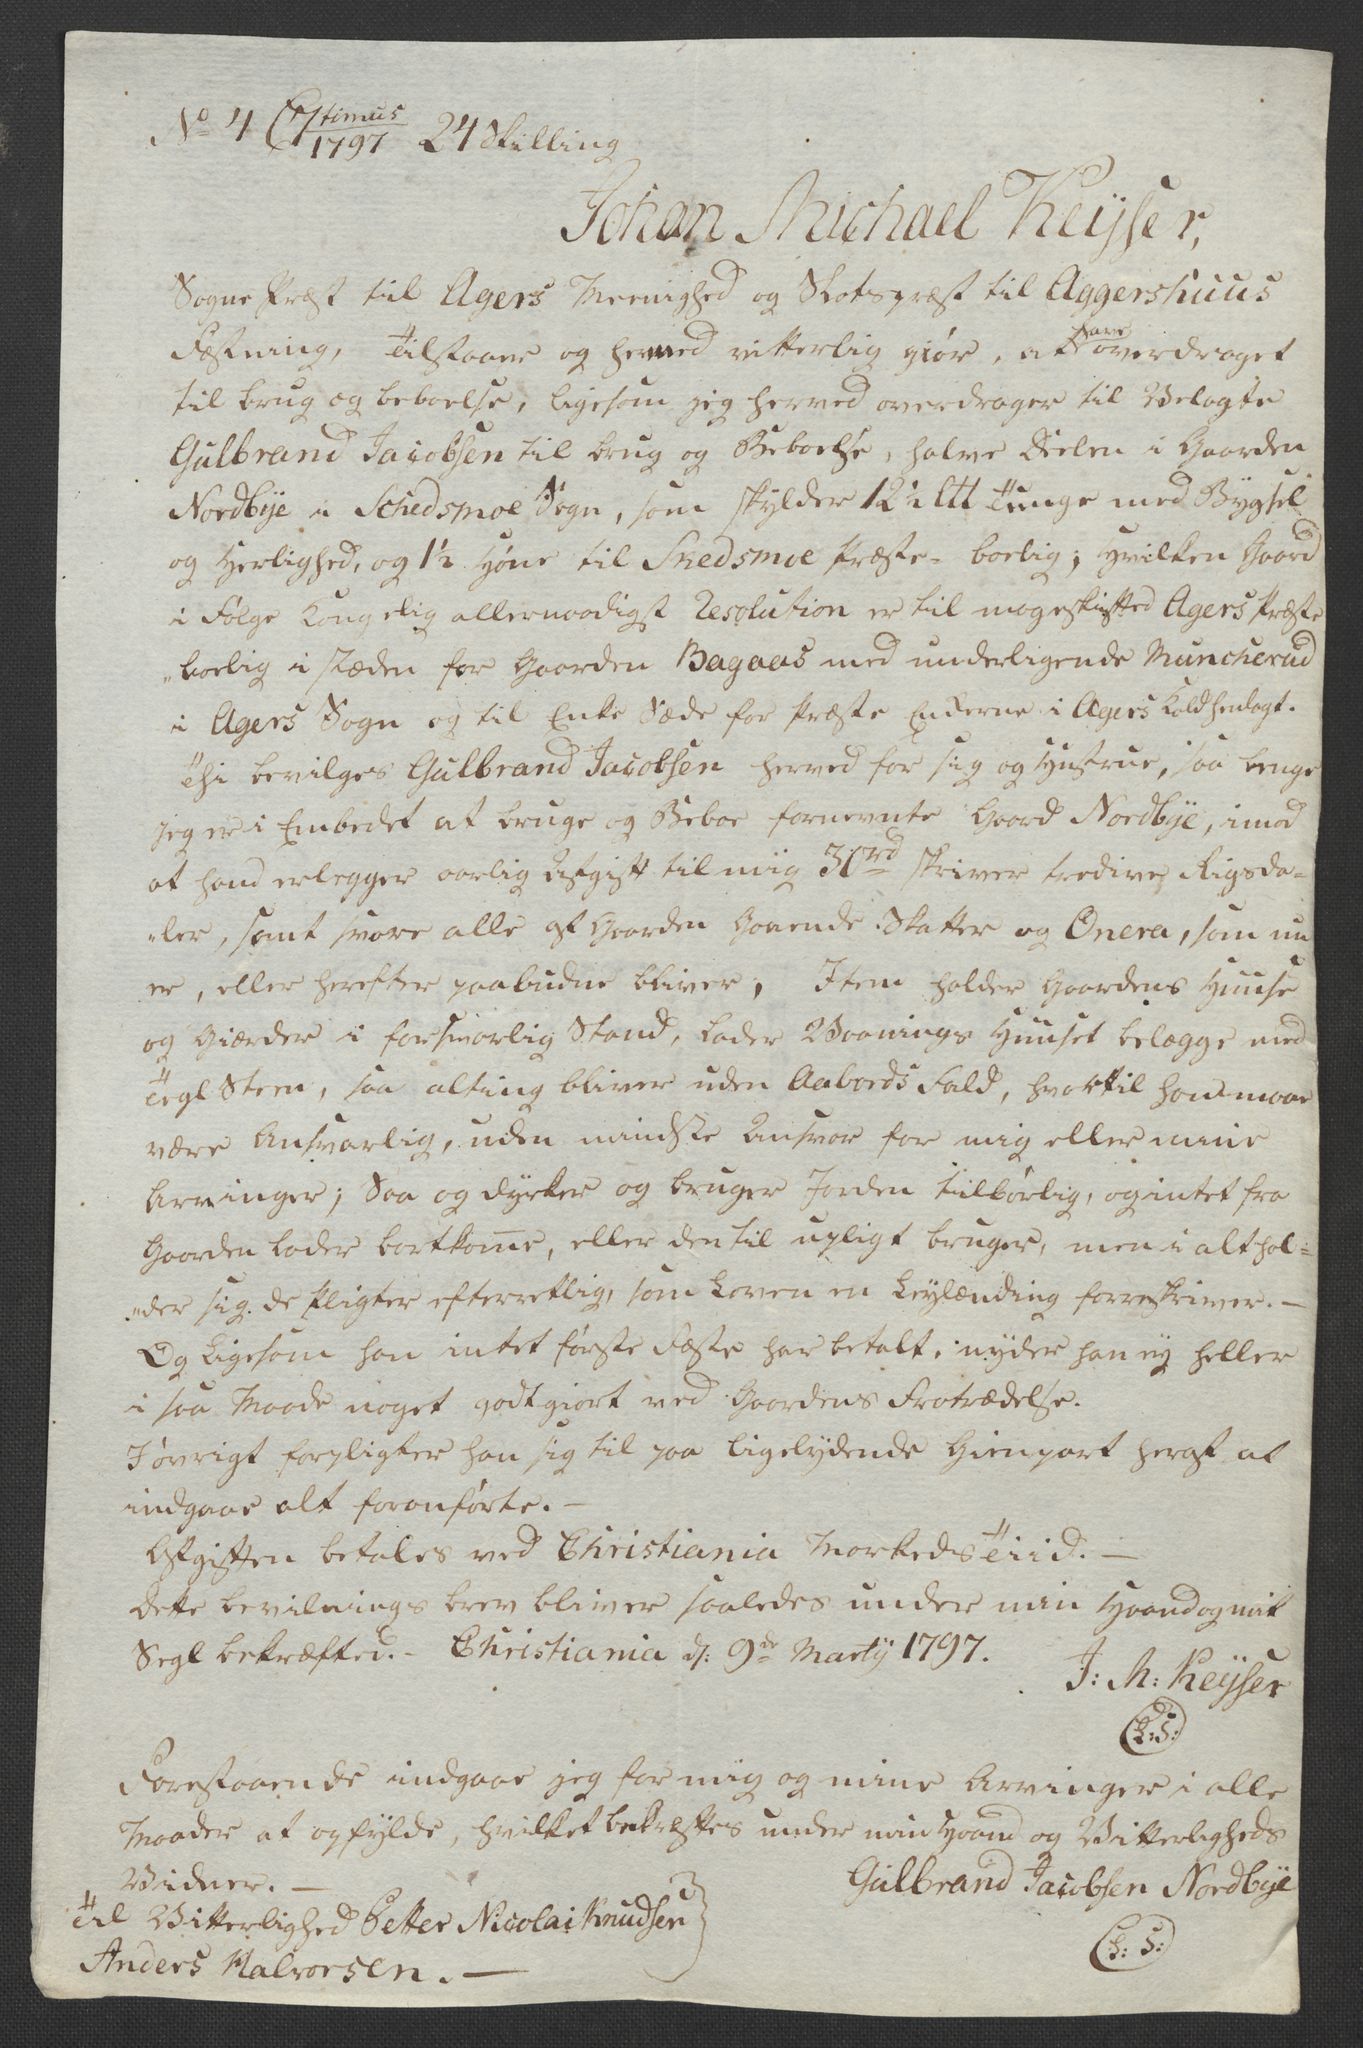 No 4 C7timus 1797 24 Skilling
Johan Michael Keyser,
Sogne Præst til Agers Meenighed og Slotspræst til Aggershuus
Fæstning, Tilstaaer og hermed vitterlig giør, at have overdraget
til brug og beboelse, ligesom jeg herved overdrager til Velagte
Gulbrand Jacobsen til brug og Beboelse, halve Deelen i Gaarden
Nordbye i Schedsmoe Sogn, som skylder 12½ ltt Tunge med Bygsel
og Herlighed, og 1½ Høne til Skedsmoe Præste-boelig; hvilken Gaard
i Følge Kongelig allernaadigst Resolution er til mageskifted Agers Præste
„boelig i stæden for Gaarden Bagaas med underligende Muncherud
i Agers Sogn og til Enke Sæde for Præste Enkerne i Agers Kald henlagt.
Thi bevilges Gulbrand Jacobsen herved for sig og Hustrue, saa længe
jeg er i Embedet at bruge og Beboe fornevnte Gaard Nordbye, imod
at hand erlegger aarlig Afgift til mig 30rd skriver tredive Rigsda-
„ler, samt svare alle af Gaarden Gaaende Skatter og Onera, som nu
er, eller herefter paabudne bliver, Item holder Gaardens Huuse
og Gierder i forsvarlig Stand, lader Vaanings Huuset belægge med
Tegl Steen, saa alting bliver uden Aabods Fald, hvortil han maae
være Ansvarlig, uden mindste Ansvar for mig eller mine
Arvinger; Saa og dyrker og bruger Jorden tilbørlig, og intet fra
Gaarden lader bortkome, eller den til upligt bruger, men i alt hol-
„der sig de Pligter efterretlig, som Loven en Leylænding forreskriver. —
Og Ligesom han intet første Fæste har betalt, nyder han ey heller
i saa Maade noget godtgiort ved Gaardens Fratrædelse.
I øvrigt forpligter han sig til paa ligelydende Gienpart heraf at
indgaae alt foranførte. —
Afgiften betales ved Christiania Markeds Tiid. —
Dette bevilnings brev bliver saaledes under min Haand og mit
Segl bekræfted. - Christiania d: 9de Marty 1797.
J: M: Keyser
(L:S:)
Forestaaende indgaae jeg for mig og mine Arvinger i alle
Maader at opfylde, hvilket bekræftes under min Haand og Vitterligheds
Vidner. —
Gulbrand Jacobsen Nordbye
Til Vitterlighed Petter Nicolai Knudsen
(L: S:)
Anders Halvorsen. —